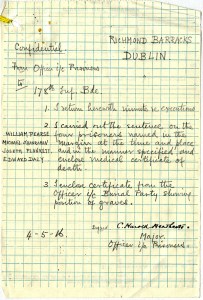 Confidential
RICHMOND BARRACKS
DUBLIN
From Officer i/c Prisoners
To
178th Inf. Bde
1. I return herewith minute re executions
2. I carried out the sentence on the
four prisoners named in the
margin at the time and place
and in the manner specified and
enclose medical certificate of
death.
WILLIAM PEARSE
MICHAEL
JOSEPH PLUNKETT
EDWARD DALY
3. I enclose certificate from the
Officer i/c Burial Party showing
position of graves.
Signed C. Harold Heathcote.
Major.
4-5-16
Officer i/c Prisoners.